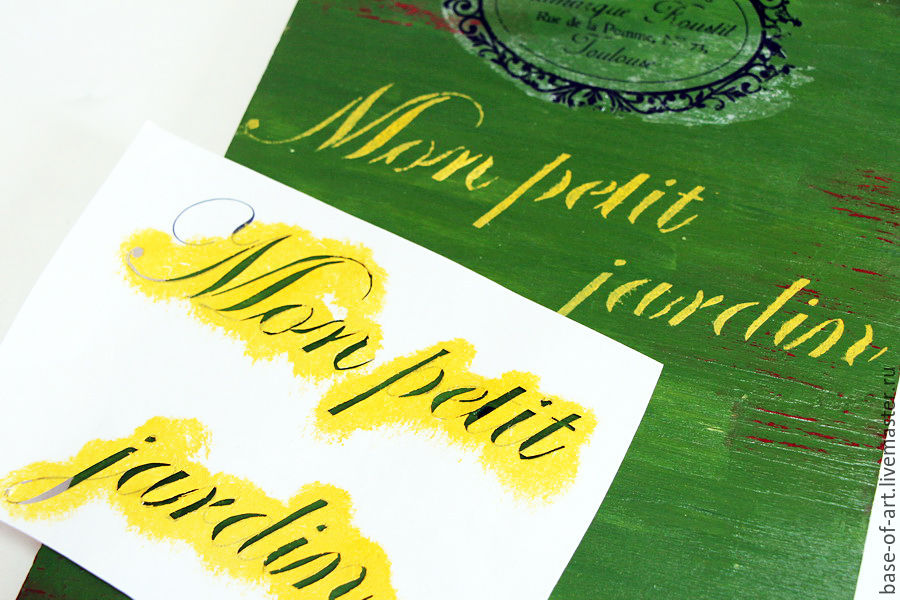 Rue de la Pomme, No 73,
Toulouse
Mon petit
jardin
Mon petit
jardin
base-of-art.livemaster.ru